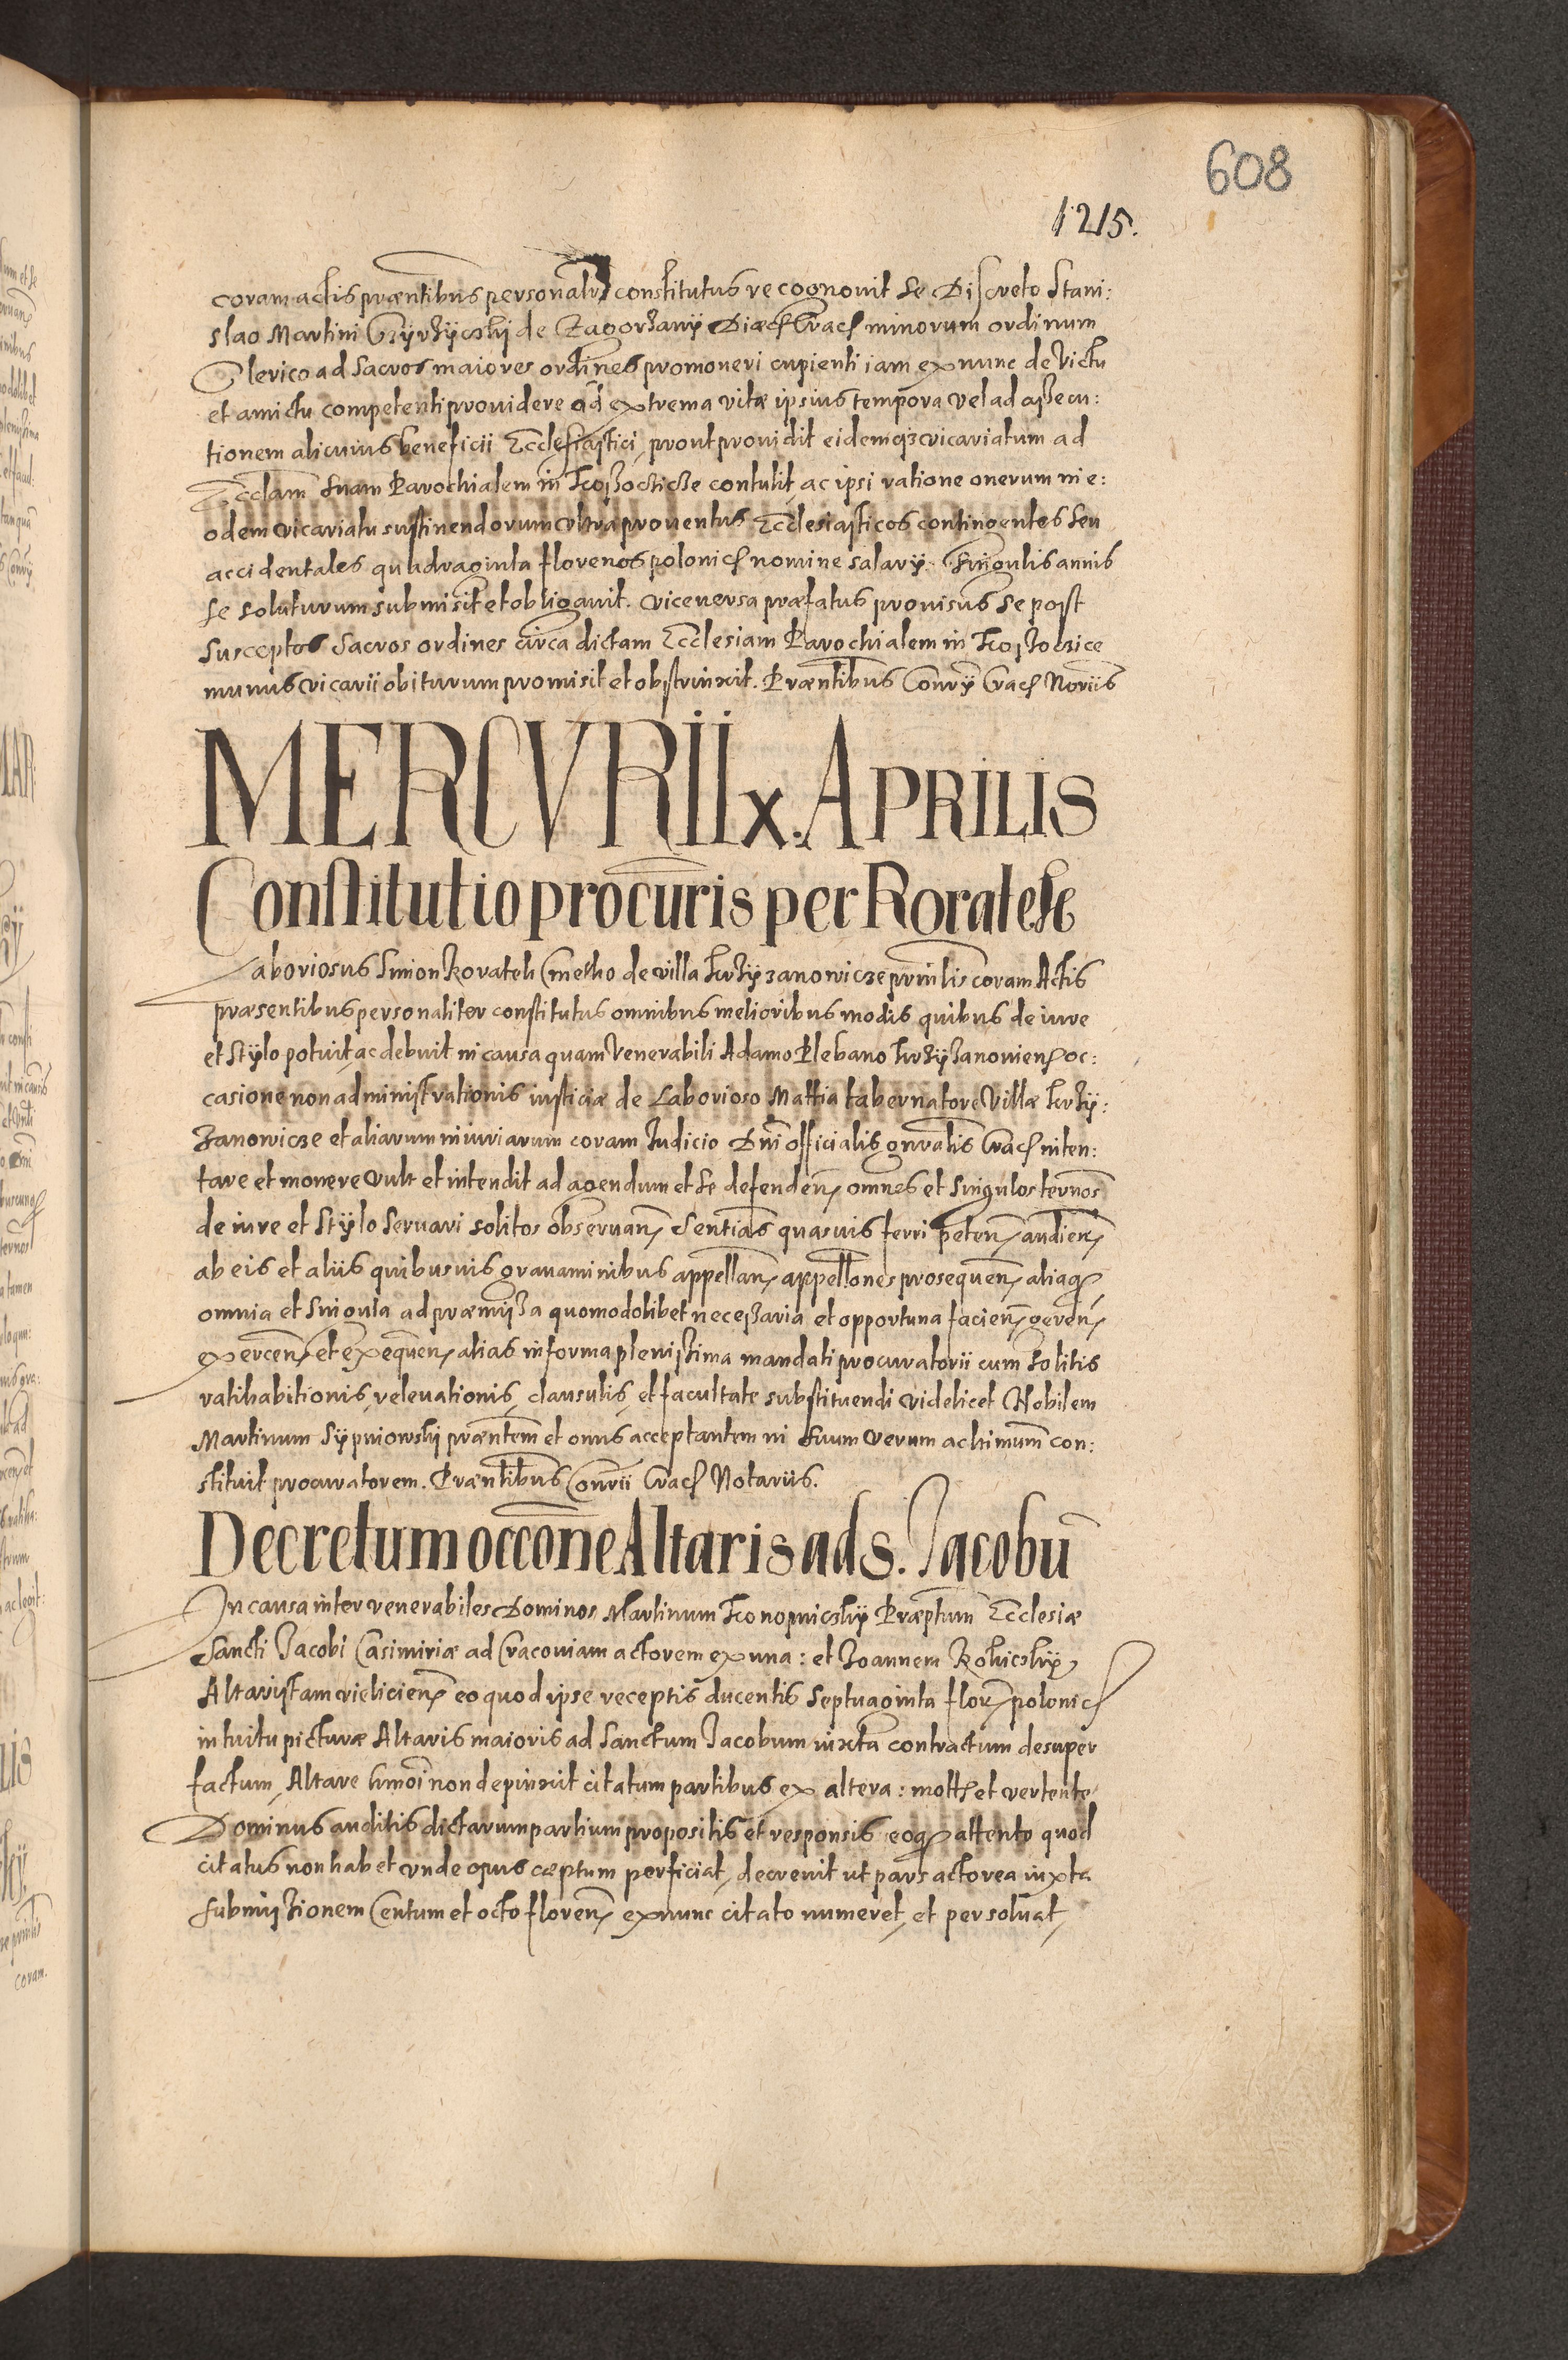 608
1215.
coram actis præntibus personalr constitutus recognovit se Discreto Stani:
slao Martini de Zagorzany Diæc Crac minorum ordinum
Clerico ad Sacros maiores ordines promoveri cupienti iam ex nunc de victu
et amictu competenti providere ad extrema vitæ ipsius tempora vel ad assecu:
tionem alicuius beneficii Ecclesiastici, prout providit eidemq3 vicariatum ad
Ecclam suam Parochialem in contulit, ac ipsi ratione onerum in e:
odem vicariatu sustinendorum ultra proventus Ecclesiasticos contingentes seu
accidentales quadraginta florenos polonic nomine salarÿ singulis annis
se soluturum submisit et obligavit. viceversa præfatus provisus se post
susceptos sacros ordines circa dictam Ecclesiam Parochialem in
munus vicarii obiturum promisit et obstrinxit. Præntibus Consrÿ Crac Noriis
MERCVRII x. APRILIS
Constitutio procuris per Koratek
Laboriosus Simon Koratek Cmetho de villa Krzÿzanowicze prinlis coram Actis
præsentibus personaliter constitutus omnibus melioribus modis quibus de iure
et stÿlo potuit ac debuit in causa quam Venerabili Adamo Plebano Krzÿzanovien oc:
casione non administrationis iusticiæ de Laborioso Mattia tabernatore Villæ Krzÿ:
zanowicze et aliarum iniuriarum coram Iudicio Dni officialis gnralis Crac inten:
tare et movere vult et intendit ad agendum et se defenden omnes et singulos ternos
de iure et stÿlo servari solitos observan sentias quasvis ferri peten audien
ab eis et aliis quibusvis gravaminibus appellan appellones prosequen aliaq
omnia et singula ad præmissa quomodolibet necessaria et opportuna facien geren
exercen et exequen alias in forma plenissima mandati procuratorii cum solitis
ratihabitionis, relevationis, clausulis, et facultate substituendi videlicet Nobilem
Martinum Sÿpniowskÿ præntem et onus acceptantem in suum verum ac ltimum con:
stituit procuratorem. Præntibus Consrii Crac Notariis.
Decretum occone Altaris ad S. Jacobu
In causa inter venerabiles Dominos Martinum Konopnickÿ Præptum Ecclesiæ
Sancti Jacobi Casimiriæ ad Cracoviam actorem ex una: et Joannem
Altaristam vielicien eo quod ipse receptis ducentis septuaginta flor polonic
intuitu picturæ Altaris maioris ad Sanctum Jacobum iuxta contractum desuper
factum, Altare hmoi non depinxit citatum partibus ex altera: mota et vertente
Dominus auditis dictarum partium propositis et responsis eoq attento quod
citatus non habet unde opus cæptum perficiat, decrevit ut pars actorea iuxta
submissionem Centum et octo floren ex nunc citato numeret, et persolvat,